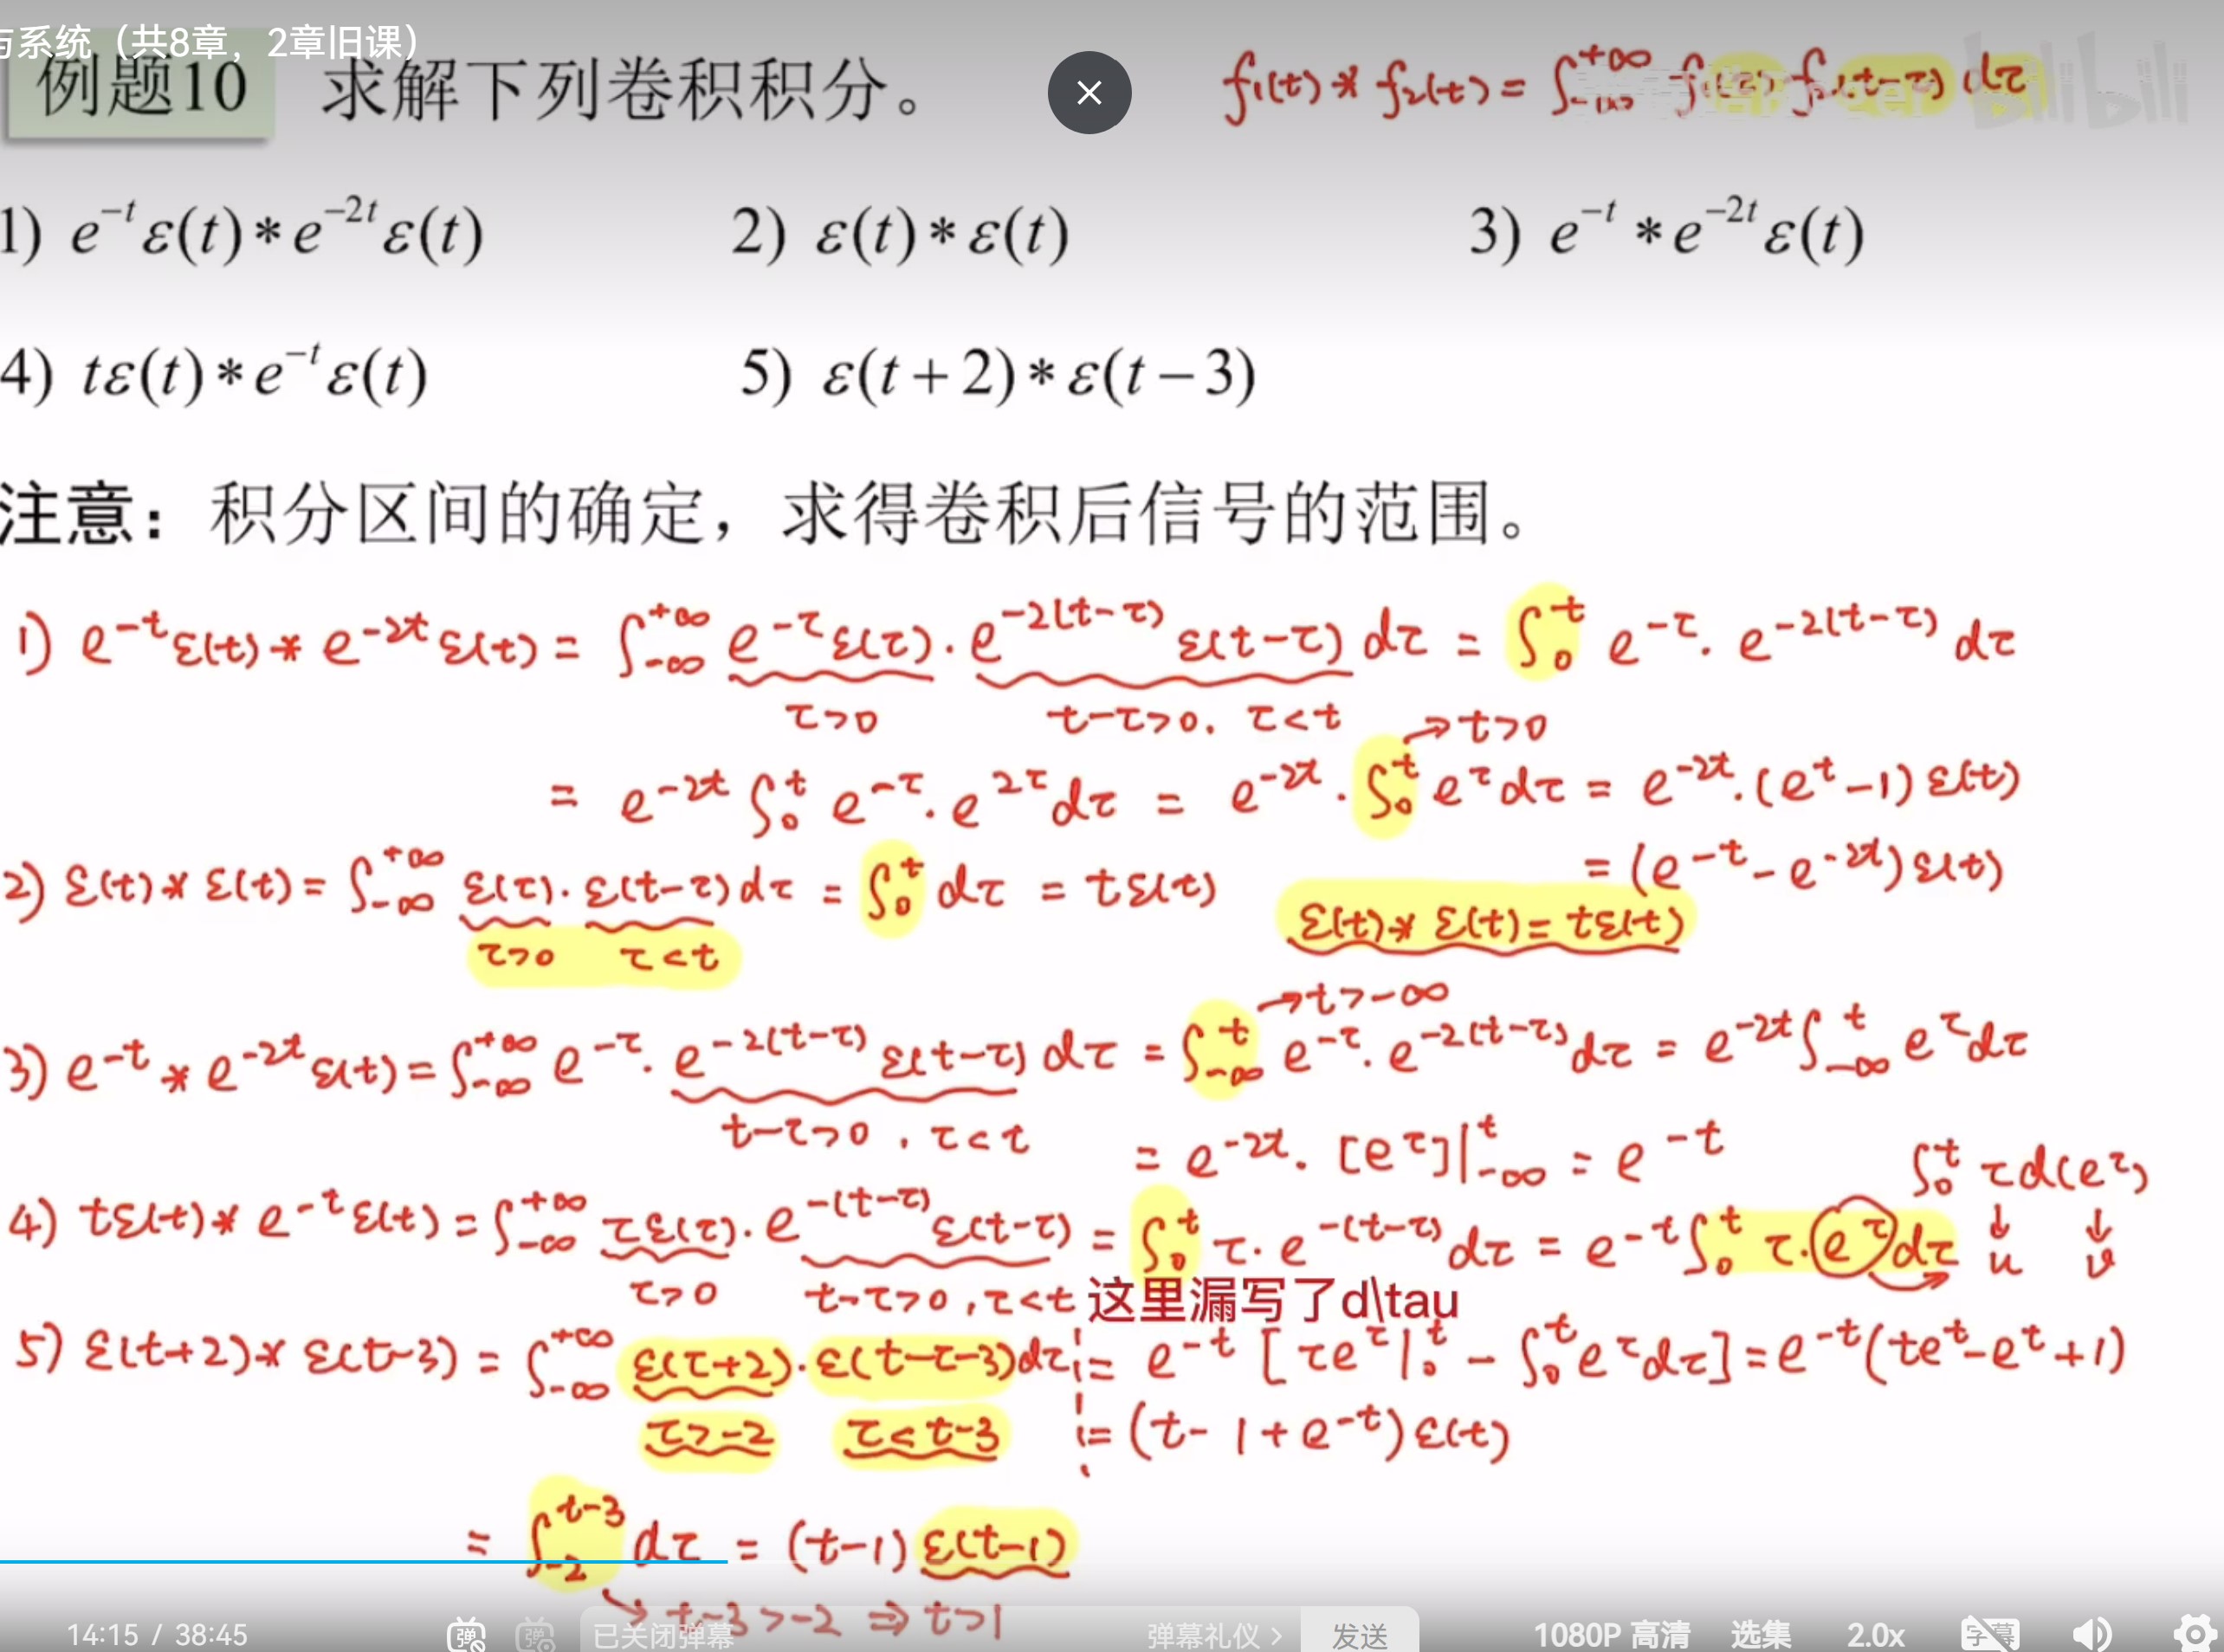 与系统（共8章，2章旧课）
例题10 求解下列卷积积分。 f₁(t) * f₂(t) = ∫_{-∞}^{+∞} f₁(τ) f₂(t-τ) dτ
bilibili
1) e^{-t}ε(t)*e^{-2t}ε(t) 2) ε(t)*ε(t) 3) e^{-t}*e^{-2t}ε(t)
4) tε(t)*e^{-t}ε(t) 5) ε(t+2)*ε(t-3)
注意：积分区间的确定，求得卷积后信号的范围。
1) e^{-t}ε(t) * e^{-2t}ε(t) = ∫_{-∞}^{+∞} e^{-τ}ε(τ)·e^{-2(t-τ)}ε(t-τ) dτ = ∫_0^t e^{-τ}·e^{-2(t-τ)} dτ
τ>0 t-τ>0, τ<t →t>0
= e^{-2t} ∫_0^t e^{-τ}·e^{2τ} dτ = e^{-2t}·∫_0^t e^τ dτ = e^{-2t}·(e^t-1) ε(t)
= (e^{-t}-e^{-2t}) ε(t)
2) ε(t) * ε(t) = ∫_{-∞}^{+∞} ε(τ)·ε(t-τ) dτ = ∫_0^t dτ = tε(t)
τ>0 τ<t
ε(t) * ε(t) = tε(t)
→t>-∞
3) e^{-t} * e^{-2t}ε(t) = ∫_{-∞}^{+∞} e^{-τ}·e^{-2(t-τ)}ε(t-τ) dτ = ∫_{-∞}^t e^{-τ}·e^{-2(t-τ)} dτ = e^{-2t} ∫_{-∞}^t e^τ dτ
t-τ>0, τ<t
= e^{-2t}·[e^τ]|_{-∞}^t = e^{-t}
∫_0^t τ d(e^τ)
↓ ↓
u v
4) tε(t) * e^{-t}ε(t) = ∫_{-∞}^{+∞} τε(τ)·e^{-(t-τ)}ε(t-τ) = ∫_0^t τ·e^{-(t-τ)} dτ = e^{-t} ∫_0^t τ·e^τ dτ
τ>0 t-τ>0, τ<t 这里漏写了d\tau
= e^{-t} [τe^τ|_0^t - ∫_0^t e^τ dτ] = e^{-t}(te^t-e^t+1)
= (t-1+e^{-t}) ε(t)
5) ε(t+2) * ε(t-3) = ∫_{-∞}^{+∞} ε(τ+2)·ε(t-τ-3) dτ
τ>-2 τ<t-3
= ∫_{-2}^{t-3} dτ = (t-1) ε(t-1)
→ t-3>-2 ⇒ t>1
14:15 / 38:45 弹 弹 已关闭弹幕 弹幕礼仪 > 发送 1080P 高清 选集 2.0x 字幕